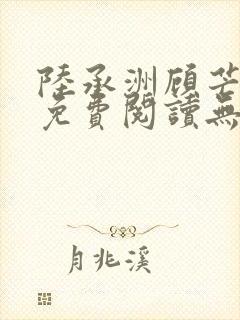 陸承洲顾芒
免費閱讀無
月兆溪